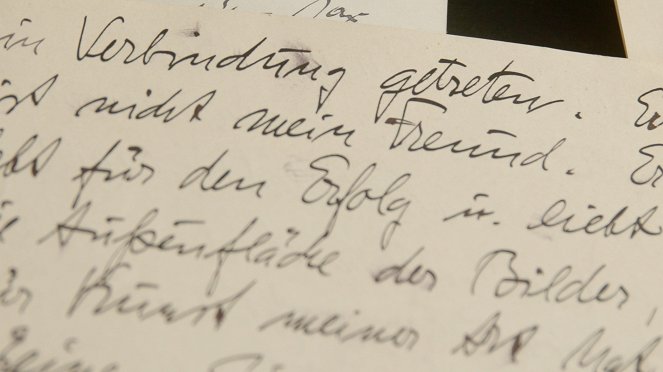 in Verbindung getreten. Er
ist nicht mein Freund. Er
für den Erfolg u. liebt
Außenfläche der Bilder,
Kunst meiner Art hat